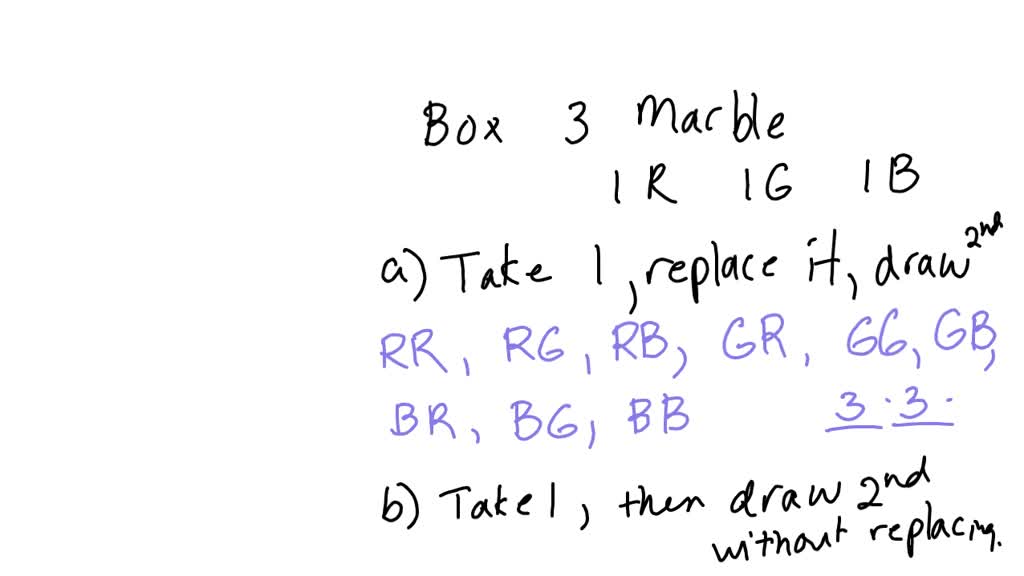 Box 3 Marble
1 R 1 G 1 B
a) Take 1, replace it, draw 2nd
RR, RG, RB, GR, GG, GB,
BR, BG, BB 3 · 3 ·
b) Take 1, then draw 2nd
without replacing.